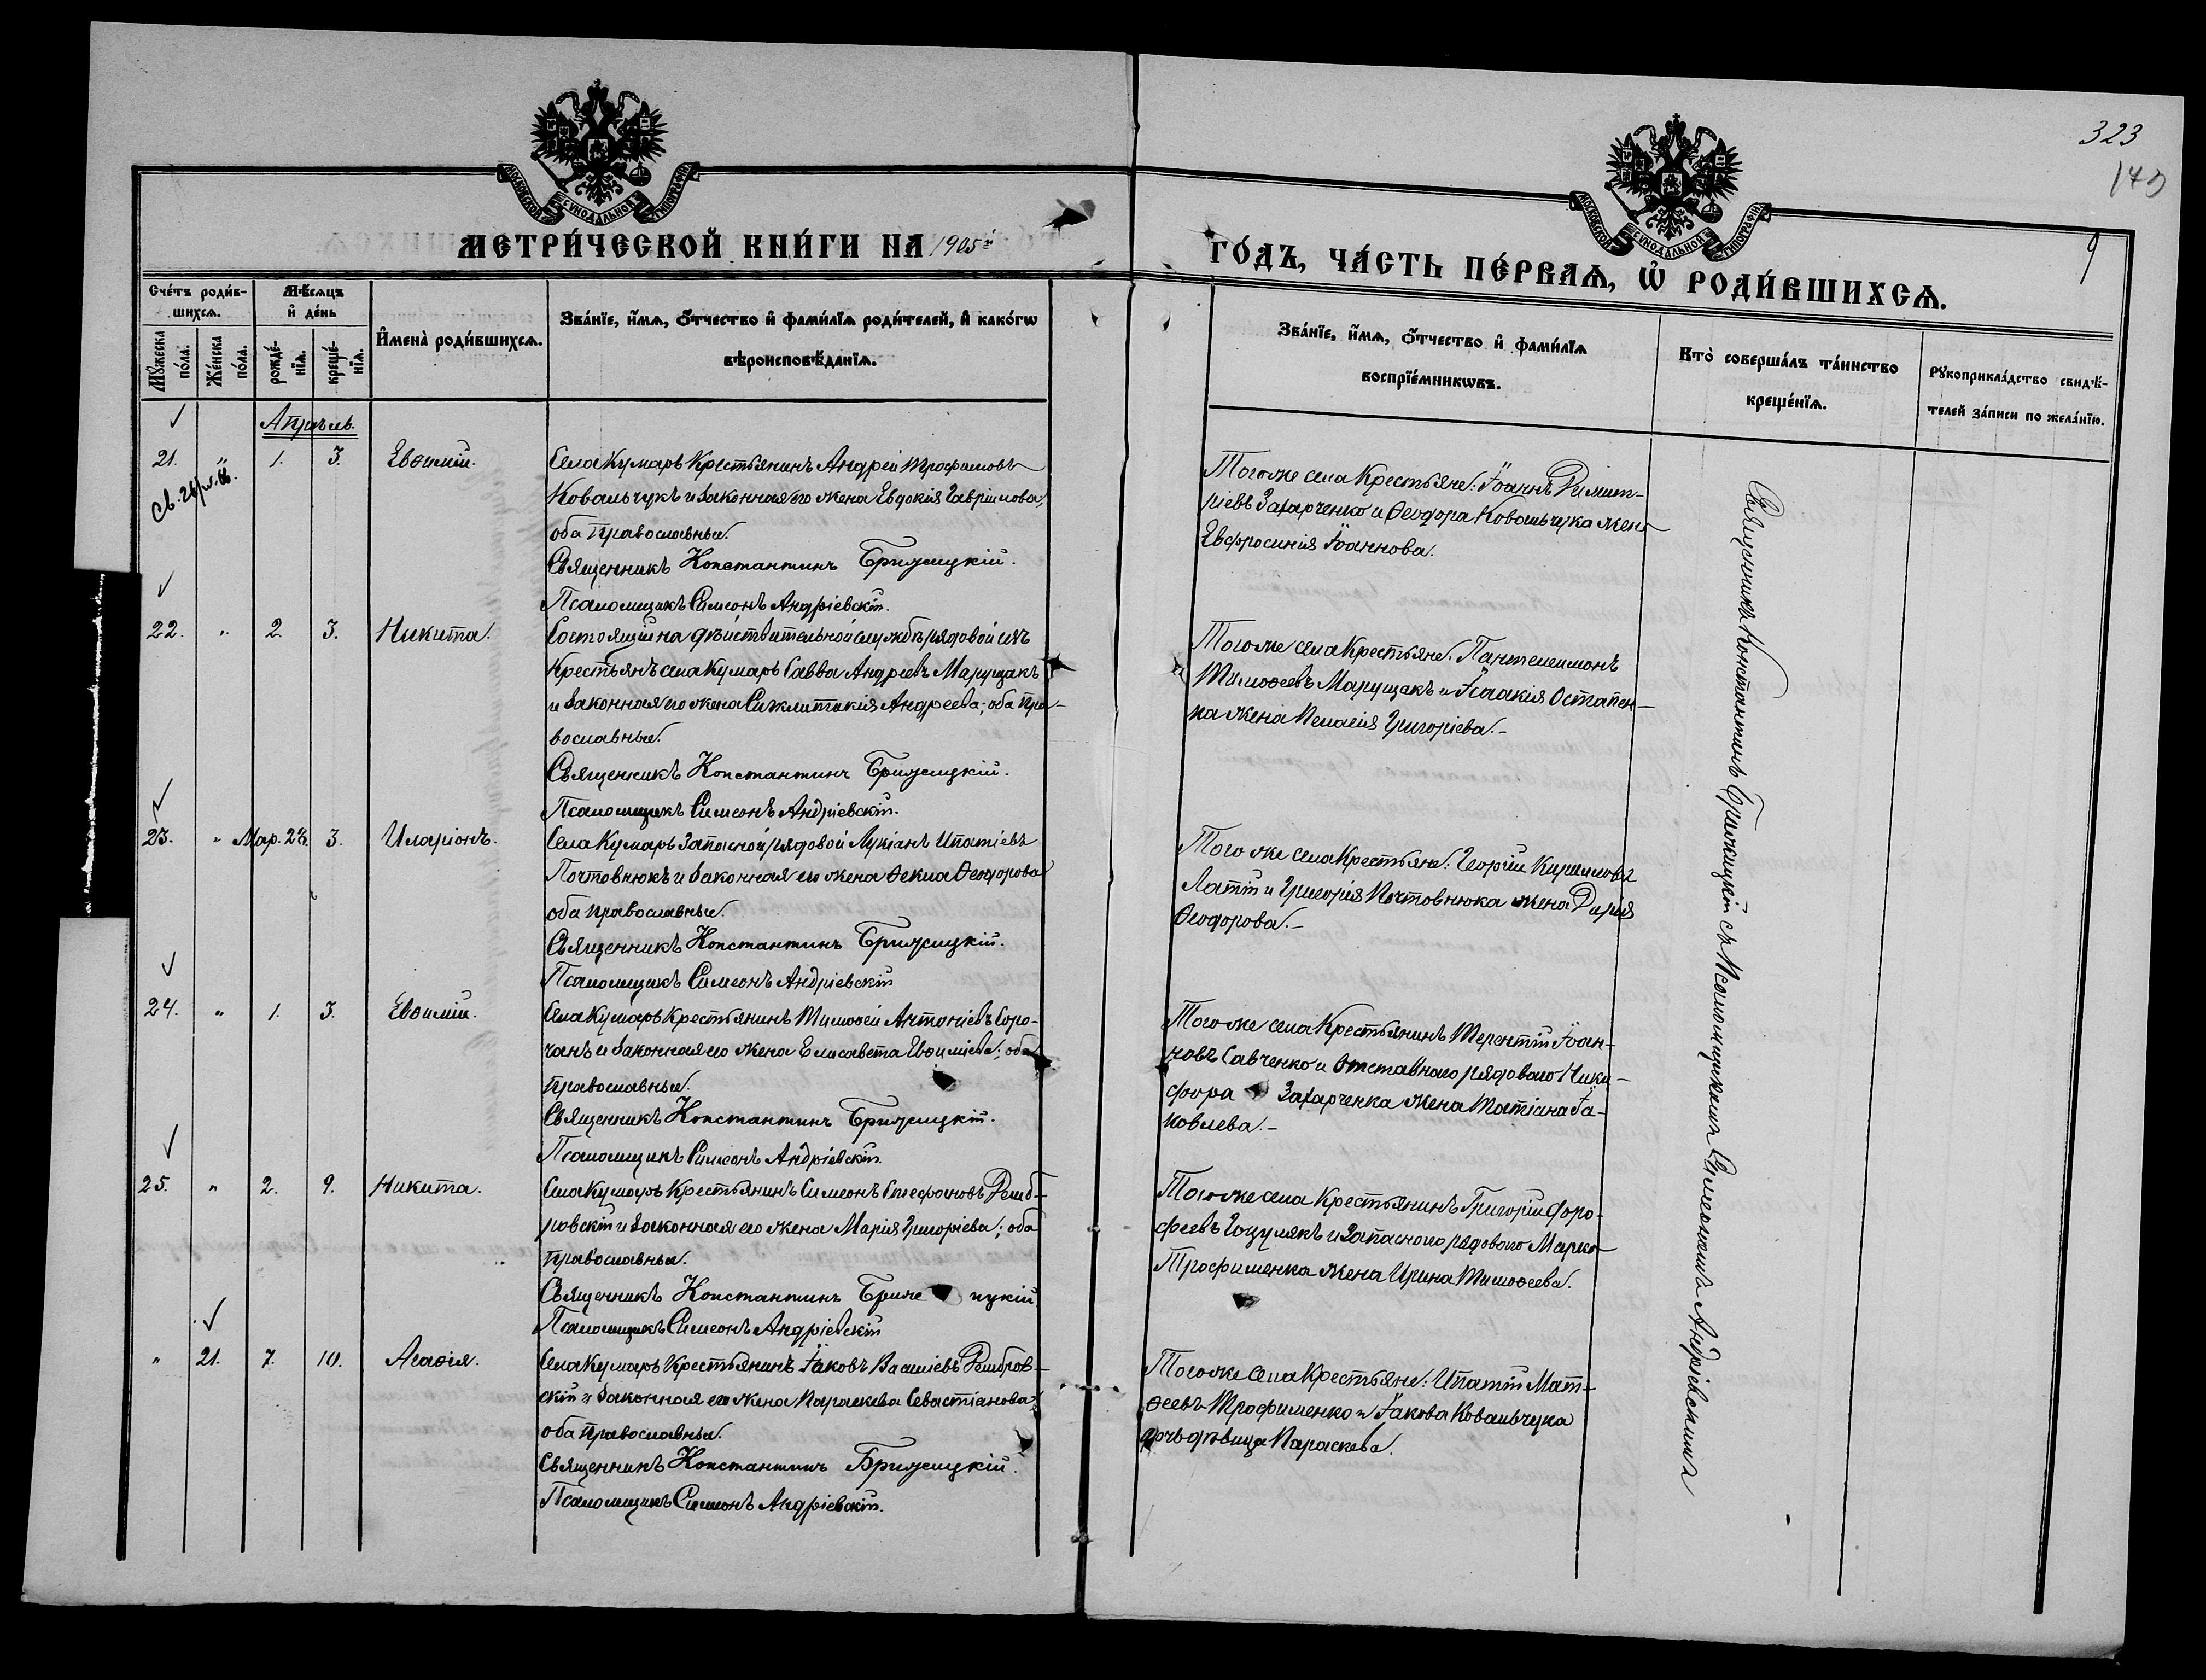 323
173
9
МОСКОВСКОЙ СѴНОДАЛЬНОЙ ТИПОГРАФІИ
МОСКОВСКОЙ СѴНОДАЛЬНОЙ ТИПОГРАФІИ
МЕТРИ́ЧЕСКОЙ КНИ́ГИ НА 1905й
ГО́ДЪ, ЧА́СТЬ ПЕ́РВАѦ, Ѽ РОДИ́ВШИХСѦ.
Сче́тъ роди́в-
шихсѧ.
Мꙋ́жеска по́ла.
Же́нска по́ла.
Мѣ́сѧцъ
и҆ де́нь
рожде́-
нїѧ.
креще́-
нїѧ.
И҆мена̀ роди́вшихсѧ.
Зва́нїе, и҆́мѧ, ѻ҆́тчество и҆ фами́лїѧ роди́телей, и҆ како́гѡ
вѣроисповѣ́данїѧ.
Зва́нїе, и҆́мѧ, ѻ҆́тчество и҆ фами́лїѧ
воспрїе́мникѡвъ.
Кто̀ соверша́лъ та́инство
креще́нїѧ.
Рꙋкоприкла́дство свидѣ́-
телей за́писи по жела́нїю.
Апрѣль.
21. " 1. 3. Евѳимій.
Села Кумаръ Крестьянинъ Андрей Трофимовъ
Ковальчукъ и законная его жена Евдокія Гавріилова,
оба православные.
Священникъ Константинъ Бржицкій.
Псаломщикъ Симеонъ Андріевскій.
Того же села Крестьяне: Іоаннъ Димит-
ріевъ Захарченко и Ѳеодора Ковальчука жена
Евфросинія Іоаннова.
22. " 2. 3. Никита.
Состоящій на дѣйствительной службѣ рядовой изъ
Крестьянъ села Кумаръ Савва Андреевъ Марущакъ
и законная его жена Синклитикія Андреева; оба пра-
вославные.
Священникъ Константинъ Бржицкій.
Псаломщикъ Симеонъ Андріевскій.
Того же села Крестьяне: Пантелеимонъ
Тимоѳеевъ Марущакъ и Исаакія Остапен-
ка жена Пелагія Григоріева.-
23. " Мар. 28. 3. Иларіонъ.
Села Кумаръ Запасной рядовой Лукіанъ Ипатіевъ
Почтовнюкъ и законная его жена Ѳекла Ѳеодорова
оба православные.
Священникъ Константинъ Бржицкій.
Псаломщикъ Симеонъ Андріевскій
Того же села Крестьяне: Георгій Кирилловъ
Латій и Григорія Почтовнюка жена Дарія
Ѳеодорова.-
24. " 1. 3. Евѳимій.
Села Кумаръ Крестьянинъ Тимоѳей Антоніевъ Соро-
чанъ и законная его жена Елисавета Евѳиміева; оба
православные.
Священникъ Константинъ Бржицкій.
Псаломщикъ Симеонъ Андріевскій.
Того же села Крестьянинъ Терентій Іоан-
новъ Савченко и Отставного рядового Ники-
фора Захарченка жена Татіана Іа-
ковлева.-
25. " 2. 9. Никита.
Села Кумаръ Крестьянинъ Симеонъ Стефановъ Демб-
ровскій и законная его жена Марія Григоріева; оба
православные.
Священникъ Константинъ Бржицкій
Псаломщикъ Симеонъ Андріевскій
Того же села Крестьянинъ Григорій Доро-
феевъ Гоцулякъ и Запасного рядового Марка
Трофименка жена Ирина Тимоѳеева.
" 21. 7. 10. Агаѳія.
Села Кумаръ Крестьянинъ Іаковъ Василіевъ Дембров-
скій и законная его жена Параскева Севастіанова;
оба православные.
Священникъ Константинъ Бржицкій.
Псаломщикъ Симеонъ Андріевскій.
Того же села Крестьяне: Ипатій Мат-
ѳеевъ Трофименко и Іакова Ковальчука
дочь дѣвица Параскева.
Священникъ Константинъ Бржицкій съ Псаломщикомъ Симеономъ Андріевскимъ